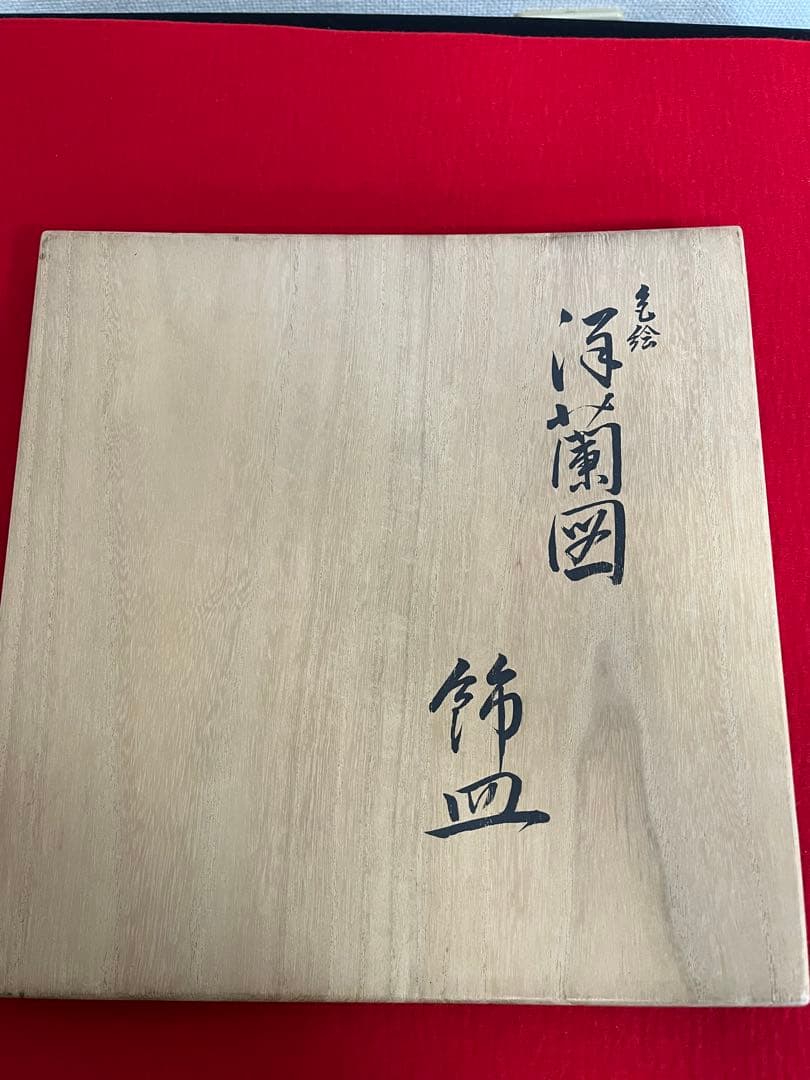 色絵
洋蘭図
飾皿